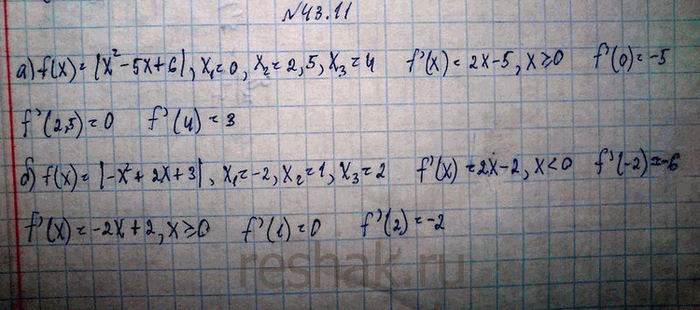 №43.11
а) f(x) = |x² - 5x + 6|, x₁ = 0, x₂ = 2,5, x₃ = 4 f'(x) = 2x - 5, x ≥ 0 f'(0) = -5
f'(2,5) = 0 f'(4) = 3
б) f(x) = |-x² + 2x + 3|, x₁ = -2, x₂ = 1, x₃ = 2 f'(x) = 2x - 2, x < 0 f'(-2) = -6
f'(x) = -2x + 2, x ≥ 0 f'(1) = 0 f'(2) = -2
reshak.ru